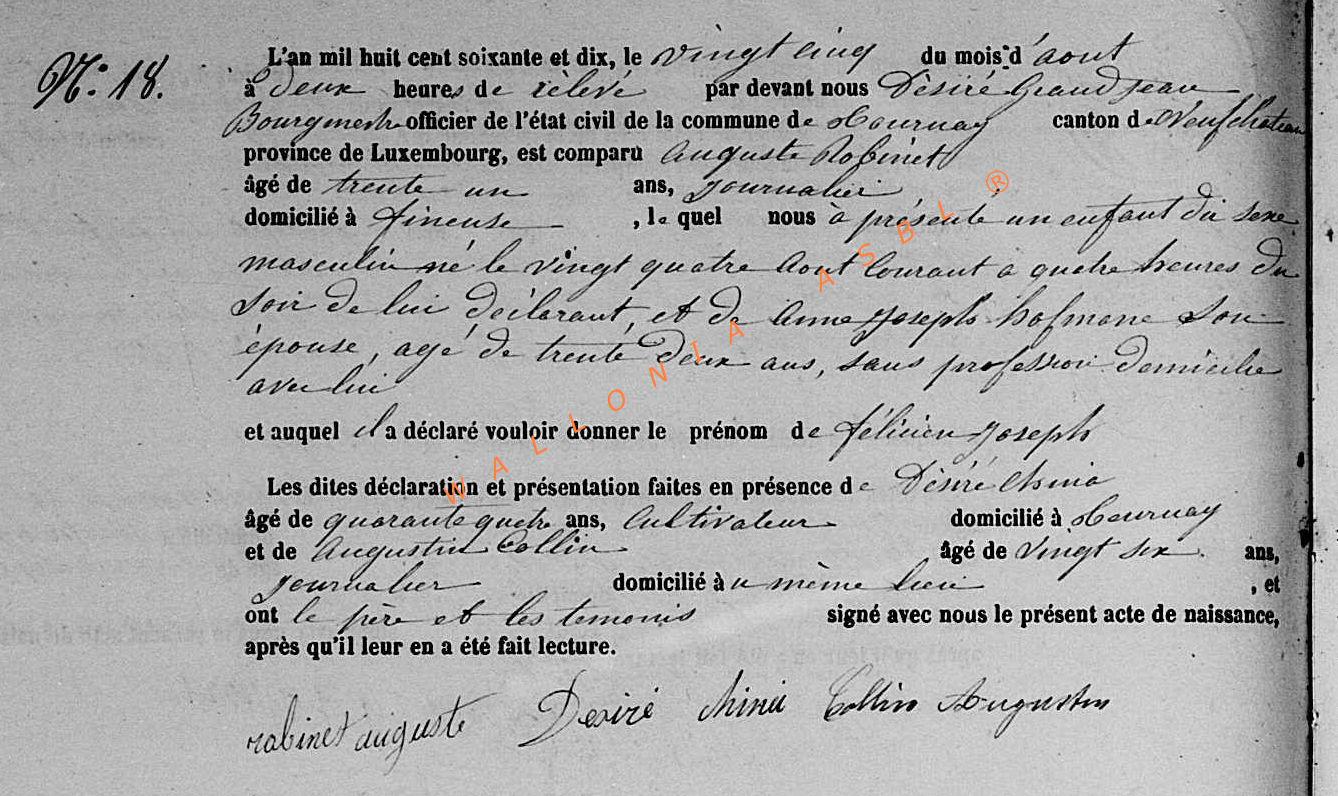 N.° 18.
L'an mil huit cent soixante et dix, le vingt cinq du mois d'aout
à deux heures de rélevé par devant nous Désiré Grandjean
Bourgmestre officier de l'état civil de la commune de Tournay canton de Neufchateau
province de Luxembourg, est comparu Auguste Robinet
âgé de trente un ans, journalier
domicilié à fineuse, le quel nous à présenté un enfant du sexe
masculin né le vingt quatre Aout Courant a quatre heures du
soir de lui déclarant, et de Anne Joseph hofmane Son
épouse, agé de trente deux ans, sans profession domicilié
avec lui
et auquel il a déclaré vouloir donner le prénom de félicien Joseph
Les dites déclaration et présentation faites en présence de Désiré
âgé de quarante quatre ans, Cultivateur domicilié à Tournay
et de Augustin Collin âgé de vingt six ans,
journalier domicilié à u même lieu, et
ont le père et les temonis signé avec nous le présent acte de naissance,
après qu'il leur en a été fait lecture.
robinet auguste Desiré Collin Augustin
WALLONIA ASBL ®